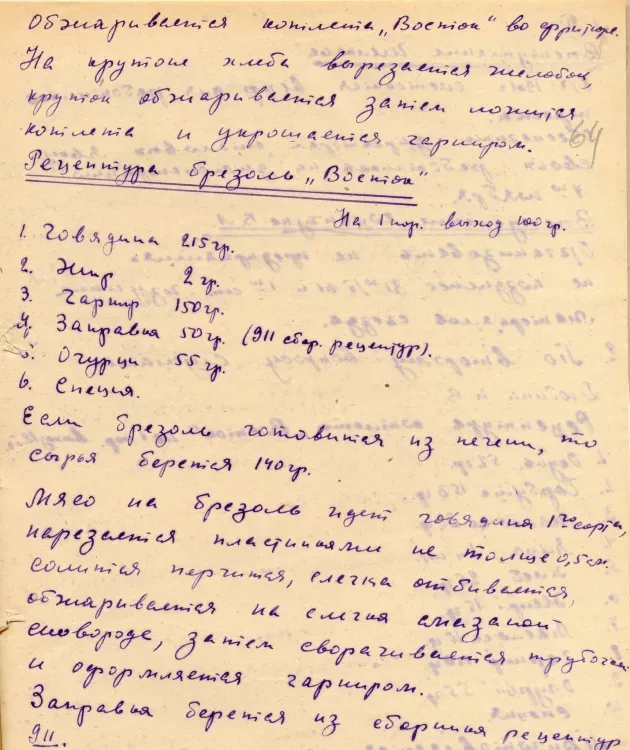 Обжаривается котлета „Восток" во фритюре.
На крутоне хлеба вырезается желобок,
крутон обжаривается затем ложится
котлета и украшается гарниром.
64
Рецептура брезоль „Восток"
На 1 пор. выход 100 гр.
1. Говядина 215 гр.
2. Жир 2 гр.
3. Гарнир 150 гр.
4. Заправка 50 гр. (911 сбор. рецептур).
5. Огурцы 55 гр.
6. Специя.
Если брезоль готовится из печени, то
сырья берется 140 гр.
Мясо на брезоль идет говядина 1го сорта,
нарезается пластинками не толще 0,5 см.
солится перчится, слегка отбивается,
обжаривается на слегка смазаной
сковороде, затем сворачивается трубочкой
и оформляется гарниром.
Заправка берется из сборника рецептур
911.